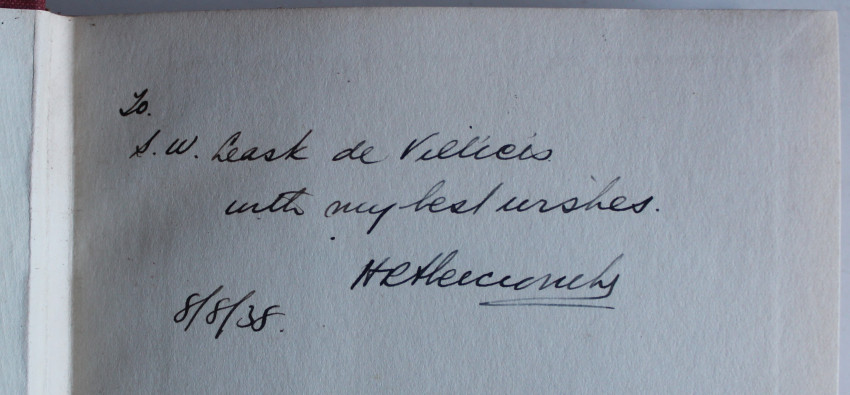 To.
S. W. Leask de Villiers
with my best wishes.
HRAbercrombie
8/8/38.